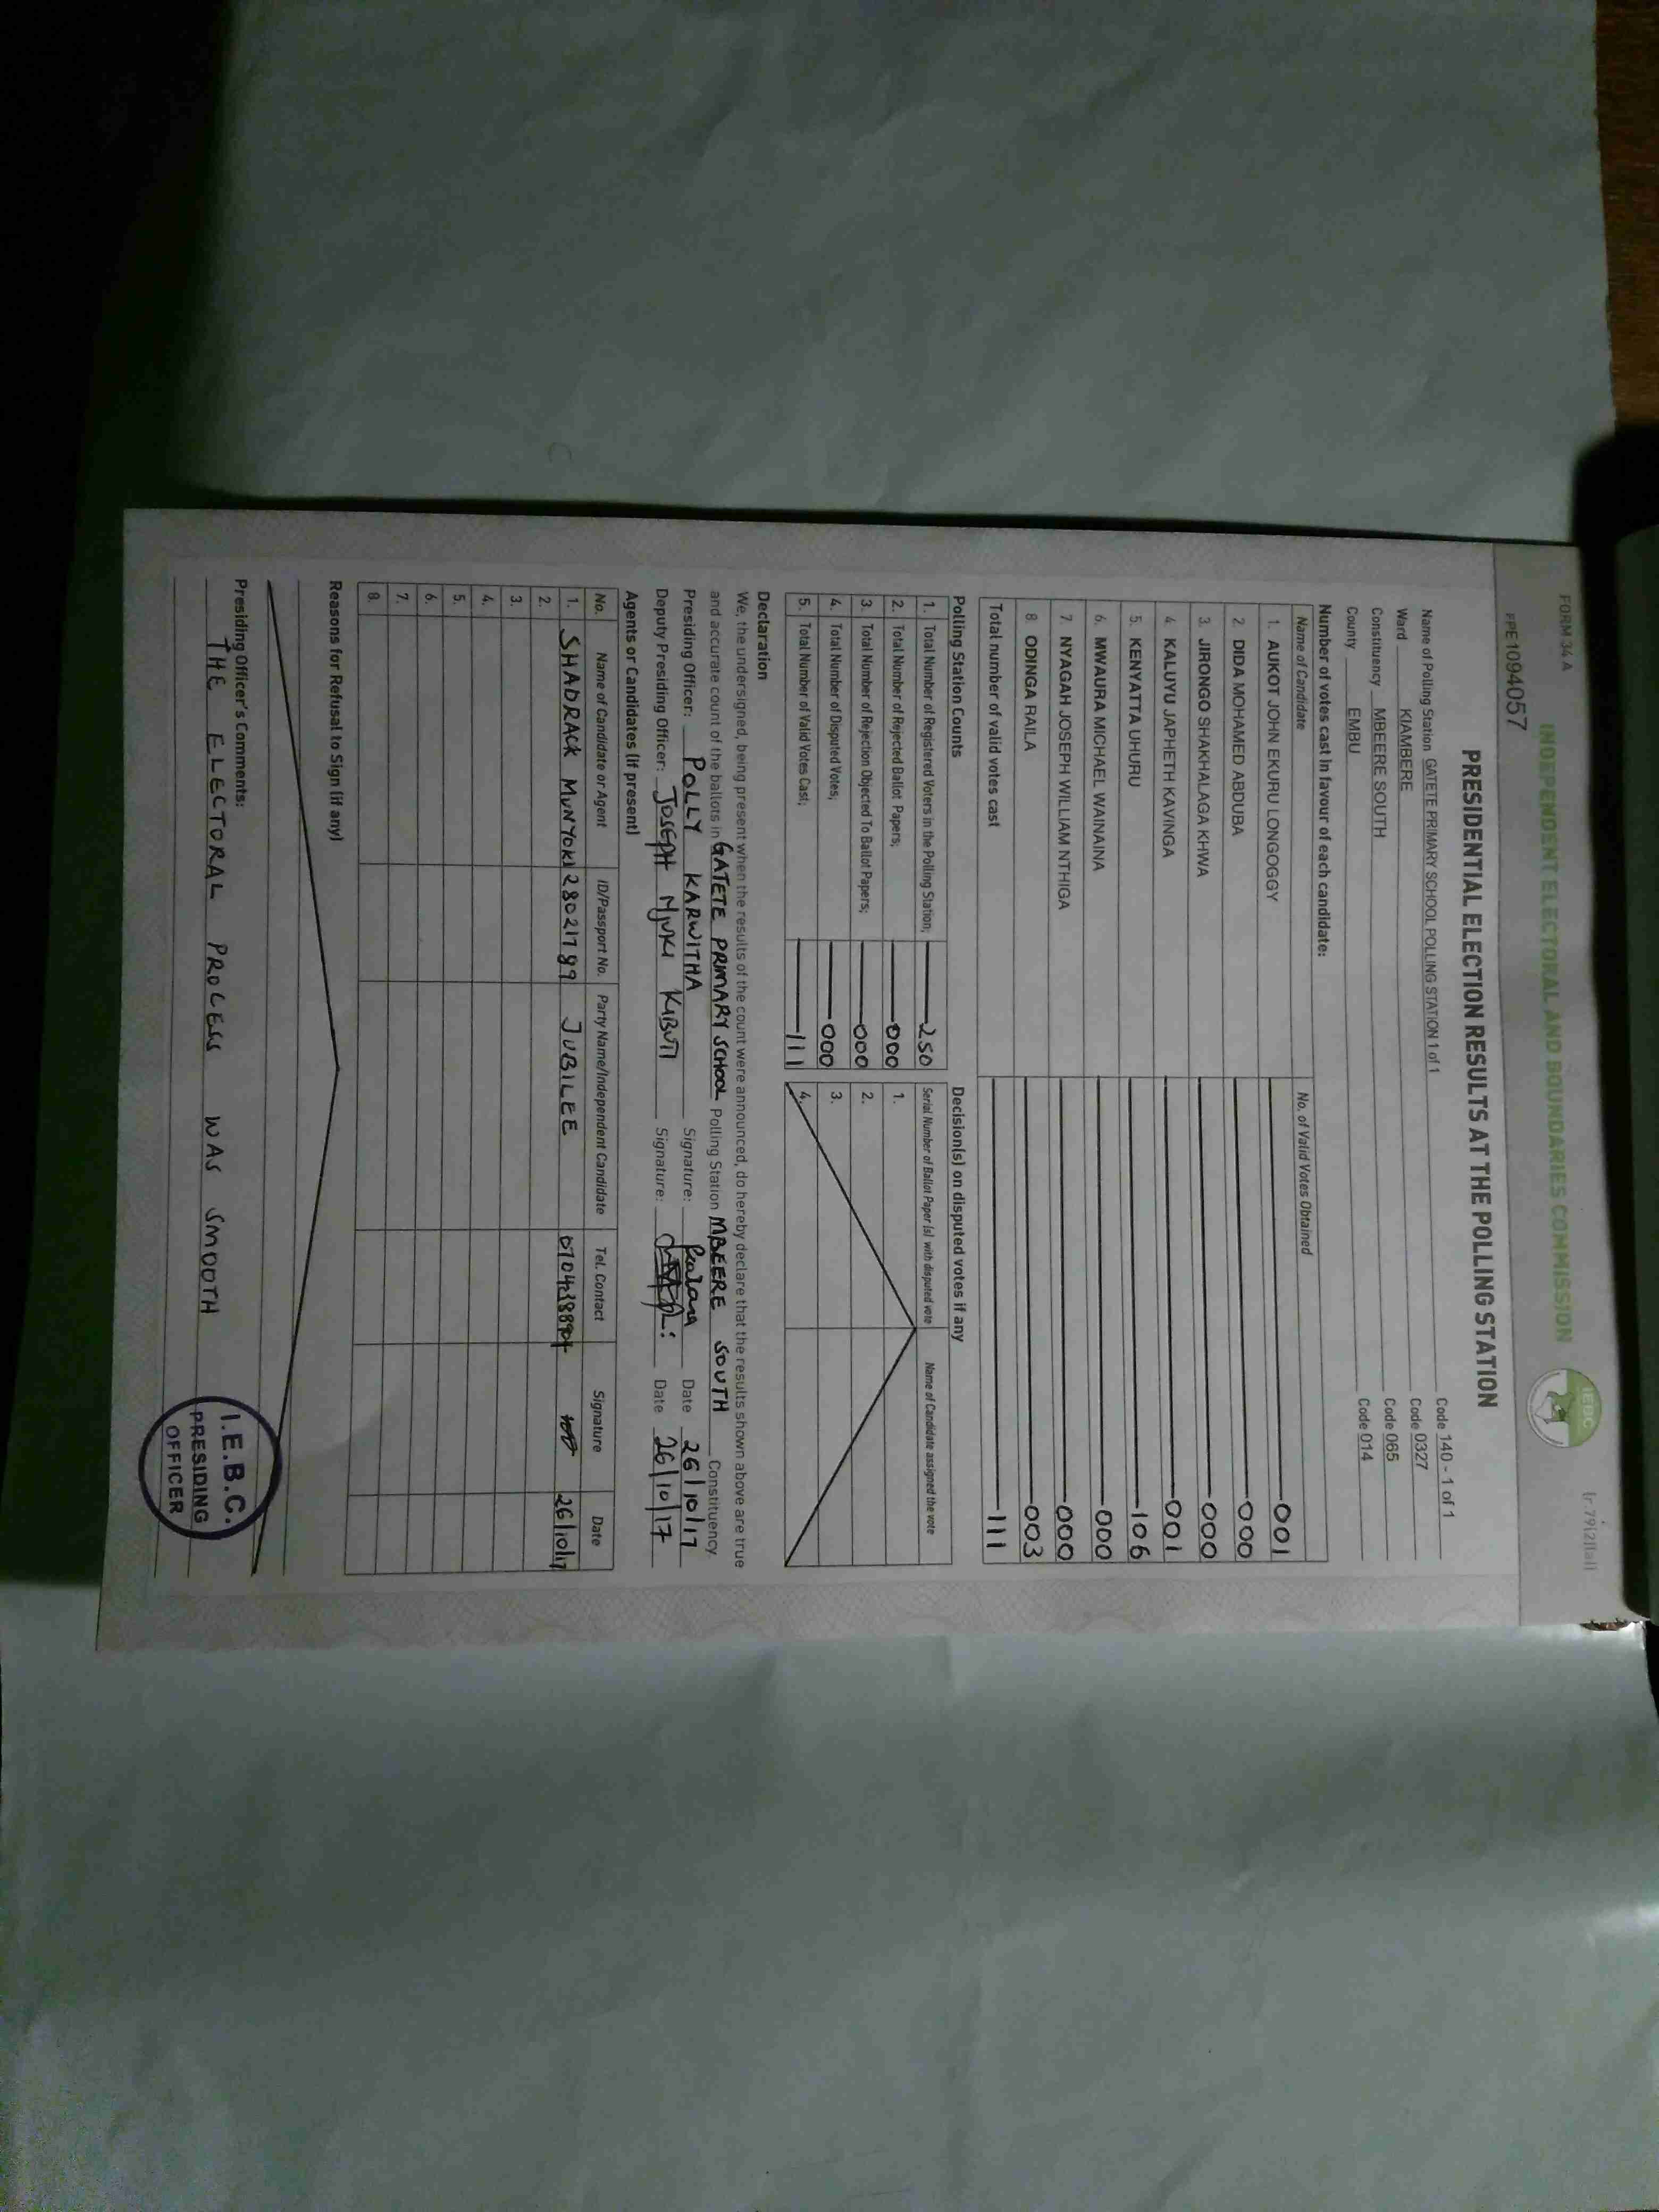 FORM 34 A
(r.79(2)(a))
INDEPENDENT ELECTORAL AND BOUNDARIES COMMISSION
IEBC
PPE1094057
PRESIDENTIAL ELECTION RESULTS AT THE POLLING STATION
Name of Polling Station GATETE PRIMARY SCHOOL POLLING STATION 1 of 1 Code 140 - 1 of 1
Ward KIAMBERE Code 0327
Constituency MBEERE SOUTH Code 065
County EMBU Code 014
Number of votes cast in favour of each candidate:
Name of Candidate No. of Valid Votes Obtained
1. AUKOT JOHN EKURU LONGOGGY 001
2. DIDA MOHAMED ABDUBA 000
3. JIRONGO SHAKHALAGA KHWA 000
4. KALUYU JAPHETH KAVINGA 001
5. KENYATTA UHURU 106
6. MWAURA MICHAEL WAINAINA 000
7. NYAGAH JOSEPH WILLIAM NTHIGA 000
8. ODINGA RAILA 003
Total number of valid votes cast 111
Polling Station Counts Decision(s) on disputed votes if any
1. Total Number of Registered Voters in the Polling Station; 250 Serial Number of Ballot Paper (s) with disputed vote Name of Candidate assigned the vote
2. Total Number of Rejected Ballot Papers; 000 1.
3. Total Number of Rejection Objected To Ballot Papers; 000 2.
4. Total Number of Disputed Votes; 000 3.
5. Total Number of Valid Votes Cast; 111 4.
Declaration
We, the undersigned, being present when the results of the count were announced, do hereby declare that the results shown above are true
and accurate count of the ballots in GATETE PRIMARY SCHOOL Polling Station MBEERE SOUTH Constituency.
Presiding Officer: POLLY KARWITHA Signature: Date 26/10/17
Deputy Presiding Officer: JOSEPH NJUKI KIBUTI Signature: Date 26/10/17
Agents or Candidates (if present)
No. Name of Candidate or Agent ID/Passport No. Party Name/Independent Candidate Tel. Contact Signature Date
1. SHADRACK MUNYOKI 28021789 JUBILEE 26/10/17
2.
3.
4.
5.
6.
7.
8.
Reasons for Refusal to Sign (if any)
Presiding Officer's Comments:
THE ELECTORAL PROCESS WAS SMOOTH
I.E.B.C.
PRESIDING
OFFICER